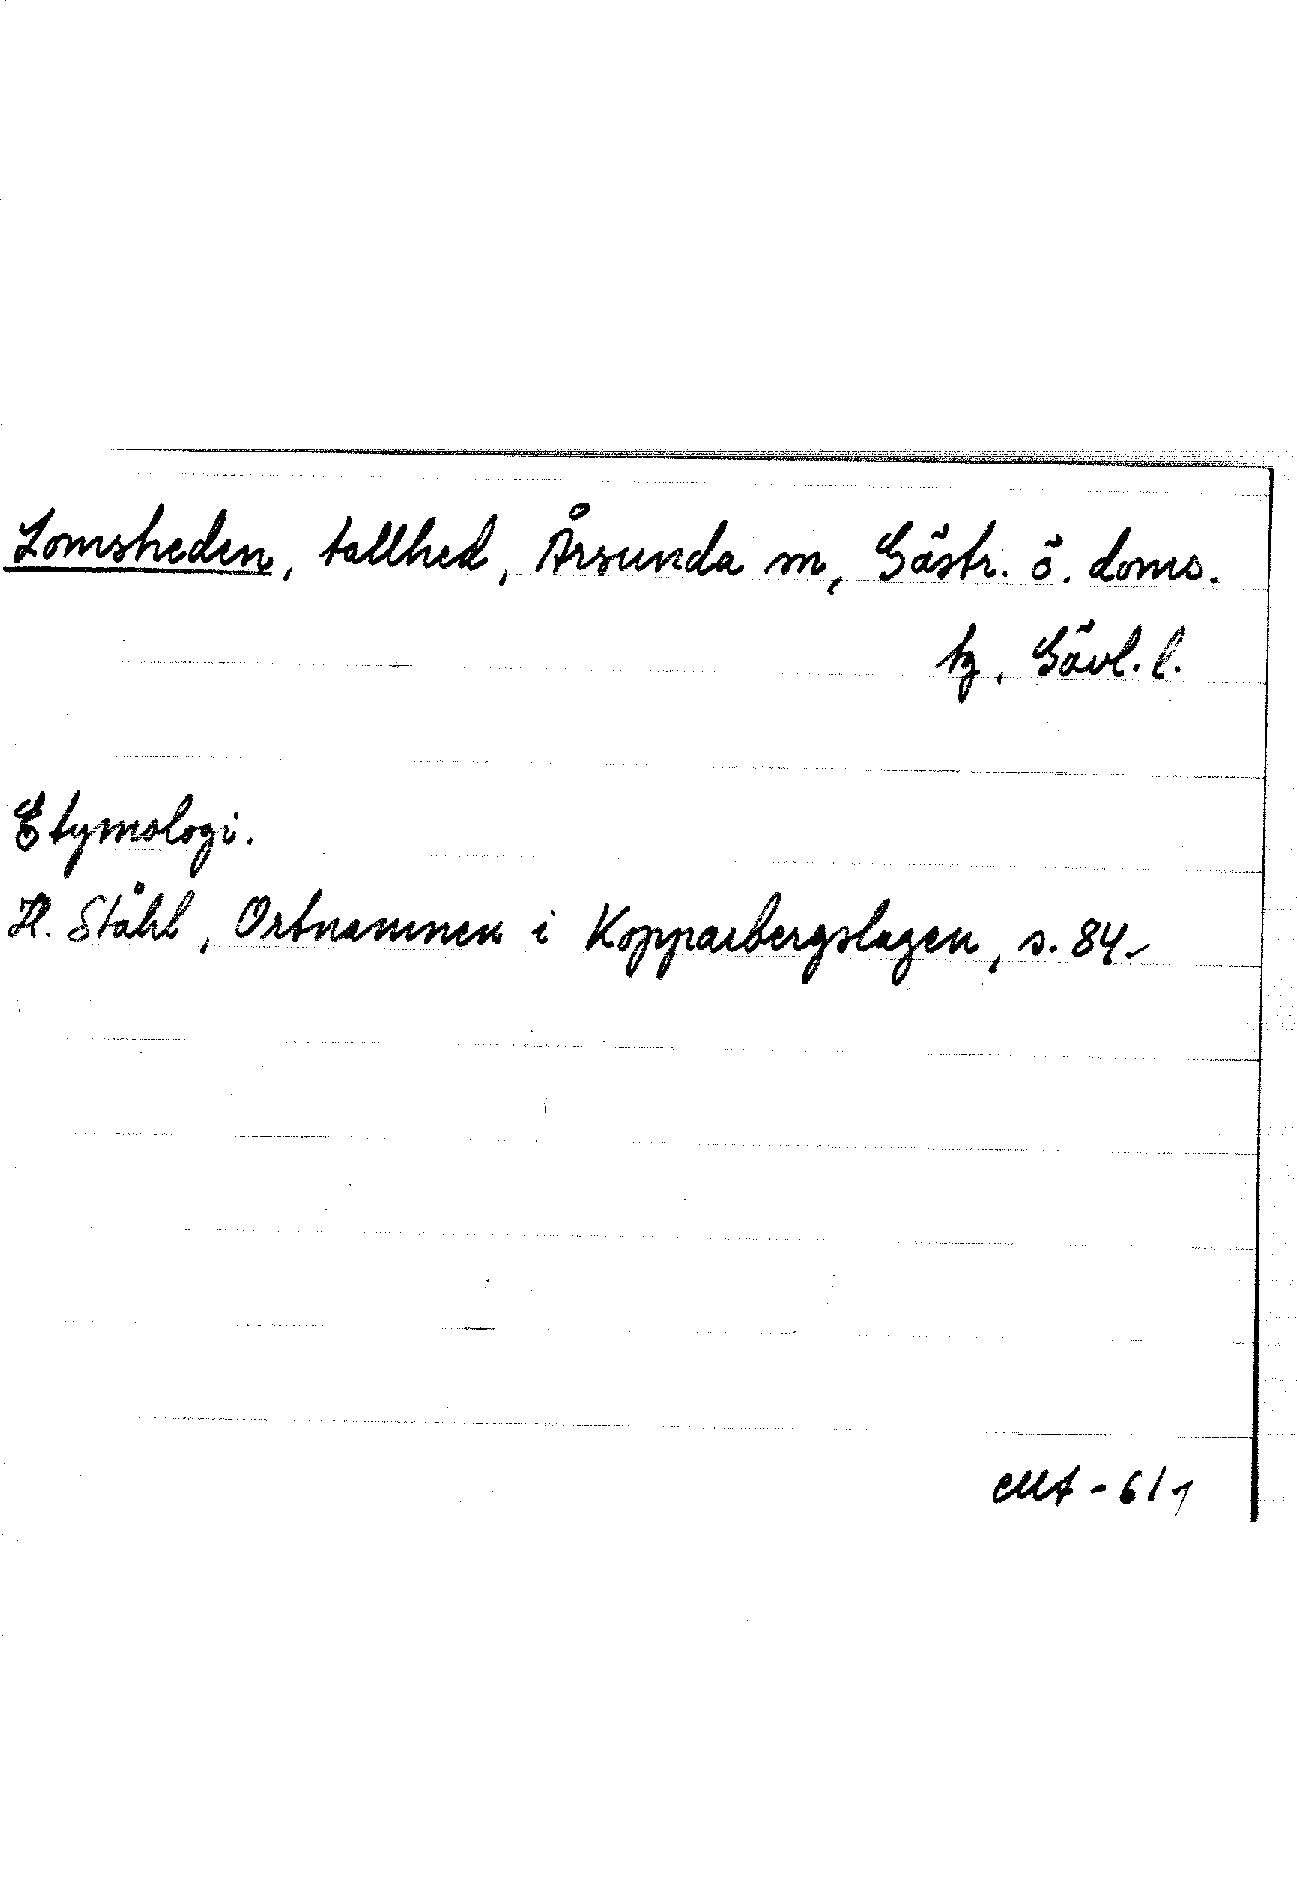 Lomsheden, tallhed, Årsunda sn, Gästr. ö. doms.
tg, Gävl. l.
Etymologi.
H. Ståhl, Ortnamnen i Kopparbergslagen, s. 84.
- 61